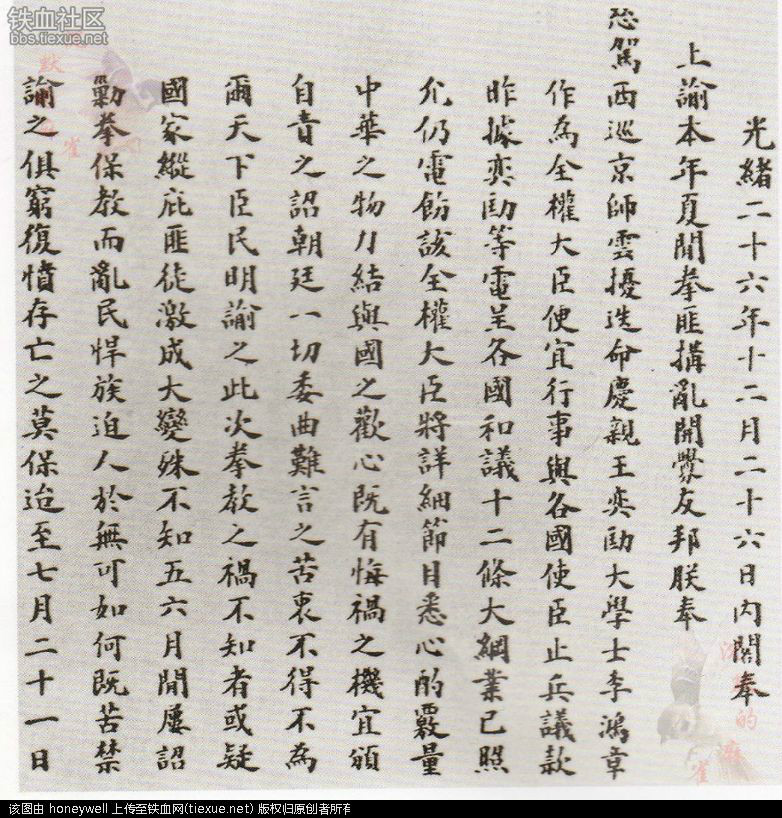 铁血社区
bbs.tiexue.net
光緒二十六年十二月二十六日內閣奉
上諭本年夏間拳匪搆亂開釁友邦朕奉
慈駕西巡京師雲擾迭命慶親王奕劻大學士李鴻章
作為全權大臣便宜行事與各國使臣止兵議款
昨據奕劻等電呈各國和議十二條大綱業已照
允仍電飭該全權大臣將詳細節目悉心酌覈量
中華之物力結與國之歡心既有悔禍之機宜頒
自責之詔朝廷一切委曲難言之苦衷不得不為
爾天下臣民明諭之此次拳教之禍不知者或疑
國家縱庇匪徒激成大變殊不知五六月間屢詔
勦拳保教而亂民悍族迫人於無可如何既苦禁
諭之俱窮復憤存亡之莫保迨至七月二十一日
的麻雀
该图由 honeywell 上传至铁血网(tiexue.net) 版权归原创者所有